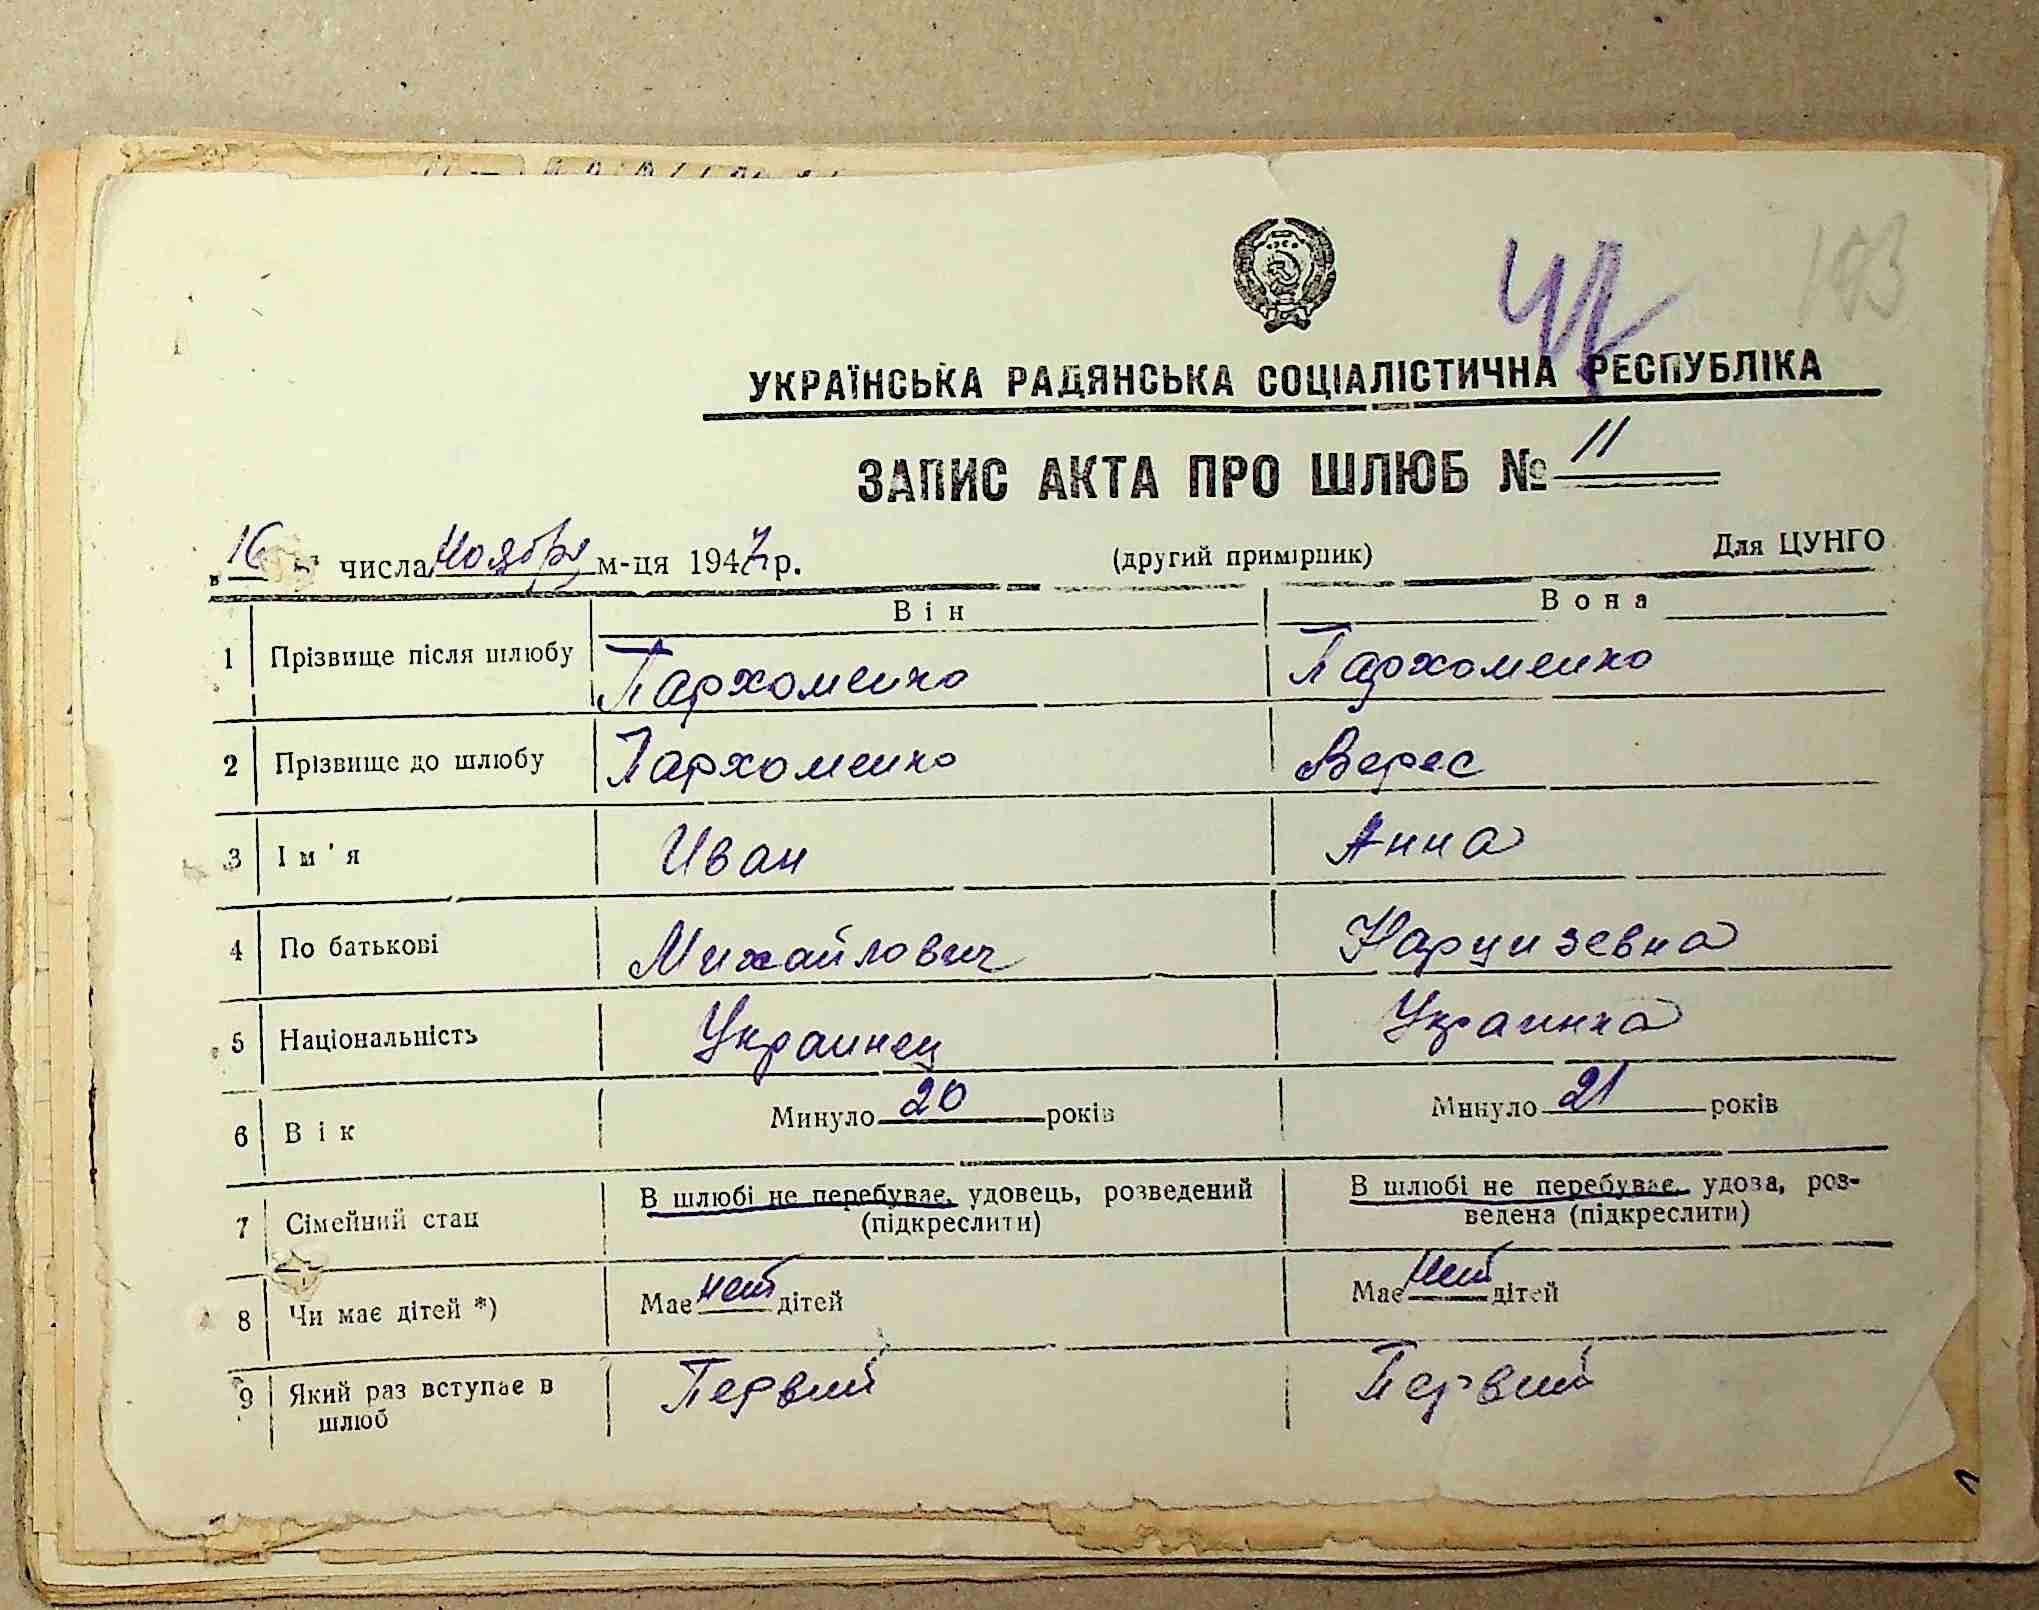 УКРАЇНСЬКА РАДЯНСЬКА СОЦІАЛІСТИЧНА РЕСПУБЛІКА
ЗАПИС АКТА ПРО ШЛЮБ № 11
16 числа Ноября м-ця 1947 р. (другий примірник) Для ЦУНГО
Він Вона
1 Прізвище після шлюбу Пархоменко Пархоменко
2 Прізвище до шлюбу Пархоменко Верес
3 Ім'я Иван Анна
4 По батькові Михайлович Нарцизевна
5 Національність Украинец Украинка
6 Вік Минуло 20 років Минуло 21 років
7 Сімейний стан В шлюбі не перебуває, удовець, розведений (підкреслити) В шлюбі не перебуває, удова, роз-
ведена (підкреслити)
8 Чи має дітей *) Має нет дітей Має нет дітей
9 Який раз вступає в шлюб Первий Первий